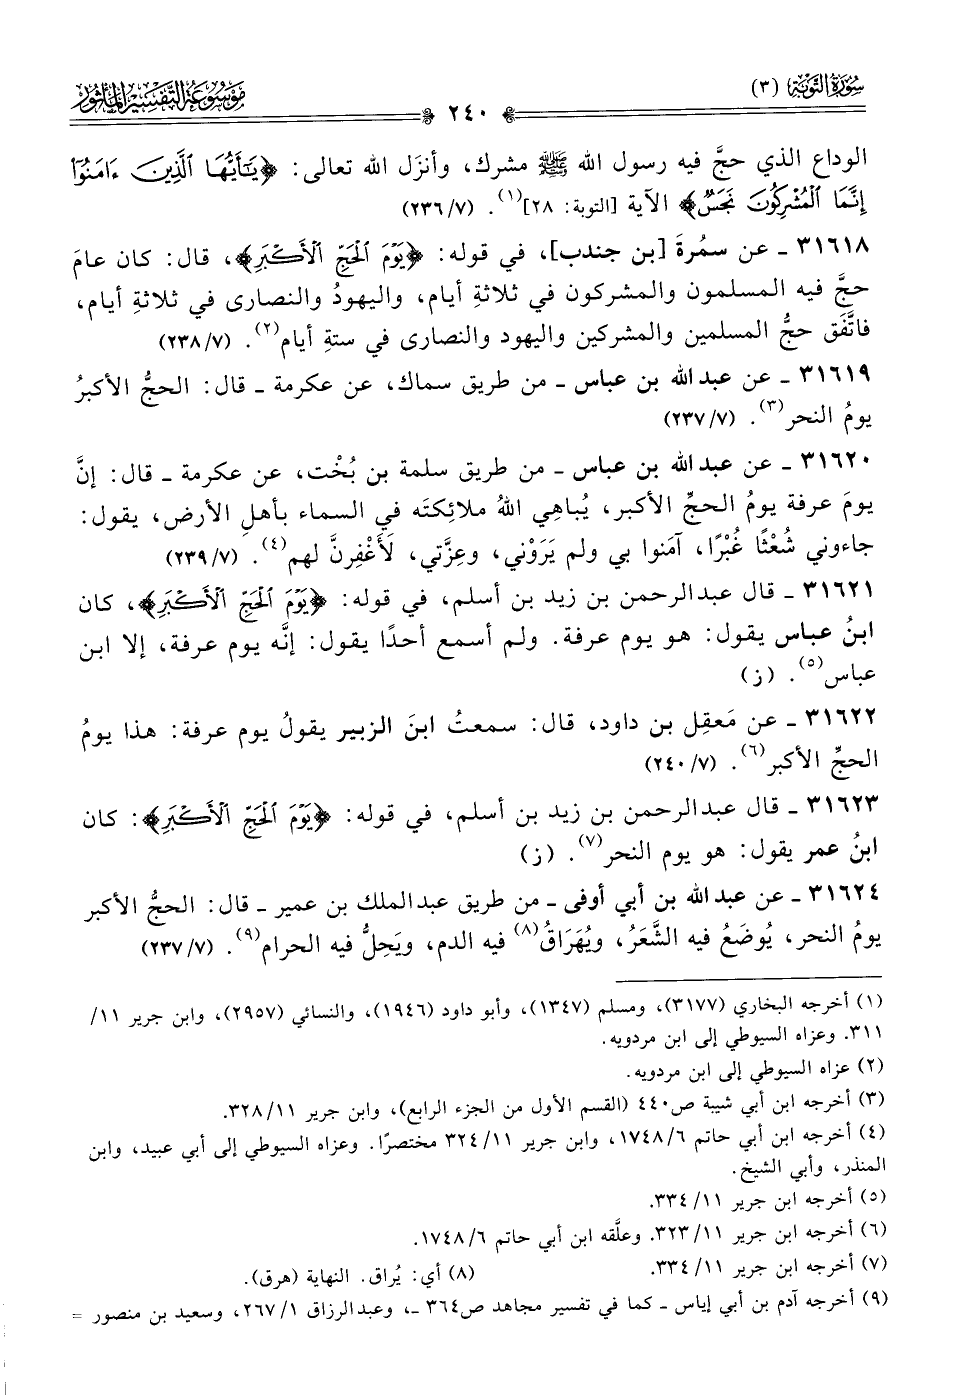 سُورَةُ التَّوْبَة (٣)
٢٤٠
مَوْسُوعَة التَّفْسِير المَأْثُور
الوداع الذي حجَّ فيه رسول الله ﷺ مشرك، وأنزَل الله تعالى: ﴿يَٰٓأَيُّهَا ٱلَّذِينَ ءَامَنُوٓا۟
إِنَّمَا ٱلْمُشْرِكُونَ نَجَسٌ﴾ الآية [التوبة: ٢٨](١). (٧/ ٢٣٦)
٣١٦١٨ ـ عن سمُرةَ [بن جندب]، في قوله: ﴿يَوْمَ ٱلْحَجِّ ٱلْأَكْبَرِ﴾، قال: كان عامَ
حجَّ فيه المسلمون والمشركون في ثلاثةِ أيام، واليهودُ والنصارى في ثلاثةِ أيام،
فاتَّفَق حجُّ المسلمين والمشركين واليهود والنصارى في ستةِ أيام(٢). (٧/ ٢٣٨)
٣١٦١٩ ـ عن عبدالله بن عباس ـ من طريق سماك، عن عكرمة ـ قال: الحجُّ الأكبرُ
يومُ النحر(٣). (٧/ ٢٣٧)
٣١٦٢٠ ـ عن عبدالله بن عباس ـ من طريق سلمة بن بُخْت، عن عكرمة ـ قال: إنَّ
يومَ عرفة يومُ الحجِّ الأكبر، يُباهِي اللهُ ملائِكتَه في السماء بأهلِ الأرض، يقول:
جاءوني شُعْثًا غُبْرًا، آمَنوا بي ولم يَرَوْني، وعِزَّتي، لَأَغْفِرنَّ لهم(٤). (٧/ ٢٣٩)
٣١٦٢١ ـ قال عبدالرحمن بن زيد بن أسلم، في قوله: ﴿يَوْمَ ٱلْحَجِّ ٱلْأَكْبَرِ﴾، كان
ابنُ عباس يقول: هو يوم عرفة. ولم أسمع أحدًا يقول: إنَّه يوم عرفة، إلا ابن
عباس(٥). (ز)
٣١٦٢٢ ـ عن مَعقِل بن داود، قال: سمعتُ ابنَ الزبير يقولُ يوم عرفة: هذا يومُ
الحجِّ الأكبر(٦). (٧/ ٢٤٠)
٣١٦٢٣ ـ قال عبدالرحمن بن زيد بن أسلم، في قوله: ﴿يَوْمَ ٱلْحَجِّ ٱلْأَكْبَرِ﴾: كان
ابنُ عمر يقول: هو يوم النحر(٧). (ز)
٣١٦٢٤ ـ عن عبدالله بن أبي أوفى ـ من طريق عبدالملك بن عمير ـ قال: الحجُّ الأكبر
يومُ النحر، يُوضَعُ فيه الشَّعَرُ، ويُهَرَاقُ(٨) فيه الدم، ويَحِلُّ فيه الحرام(٩). (٧/ ٢٣٧)
(١) أخرجه البخاري (٣١٧٧)، ومسلم (١٣٤٧)، وأبو داود (١٩٤٦)، والنسائي (٢٩٥٧)، وابن جرير ١١/
٣١١. وعزاه السيوطي إلى ابن مردويه.
(٢) عزاه السيوطي إلى ابن مردويه.
(٣) أخرجه ابن أبي شيبة ص٤٤٠ (القسم الأول من الجزء الرابع)، وابن جرير ١١/ ٣٢٨.
(٤) أخرجه ابن أبي حاتم ٦/ ١٧٤٨، وابن جرير ١١/ ٣٢٤ مختصرًا. وعزاه السيوطي إلى أبي عبيد، وابن
المنذر، وأبي الشيخ.
(٥) أخرجه ابن جرير ١١/ ٣٣٤.
(٦) أخرجه ابن جرير ١١/ ٣٢٣. وعلَّقه ابن أبي حاتم ٦/ ١٧٤٨.
(٧) أخرجه ابن جرير ١١/ ٣٣٤. (٨) أي: يُراق. النهاية (هرق).
(٩) أخرجه آدم بن أبي إياس ـ كما في تفسير مجاهد ص٣٦٤ ـ، وعبدالرزاق ١/ ٢٦٧، وسعيد بن منصور =